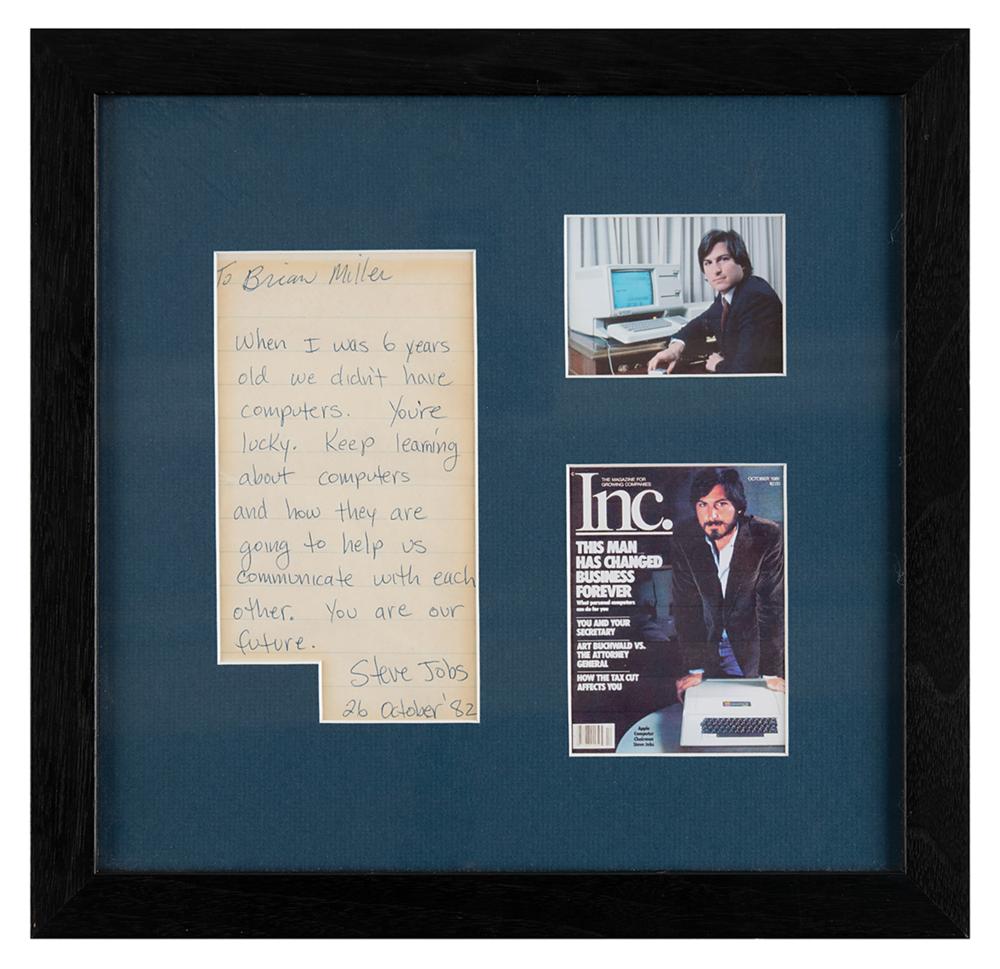 To Brian Miller
When I was 6 years
old we didn't have
computers. You're
lucky. Keep learning
about computers
and how they are
going to help us
communicate with each
other. You are our
future.
Steve Jobs
26 October '82
Inc.
THE MAGAZINE FOR
GROWING COMPANIES
OCTOBER 1981
THIS MAN
HAS CHANGED
BUSINESS
FOREVER
What personal computers
can do for you
YOU AND YOUR
SECRETARY
ART BUCHWALD VS.
THE ATTORNEY
GENERAL
HOW THE TAX CUT
AFFECTS YOU
Apple
Computer
Chairman
Steve Jobs